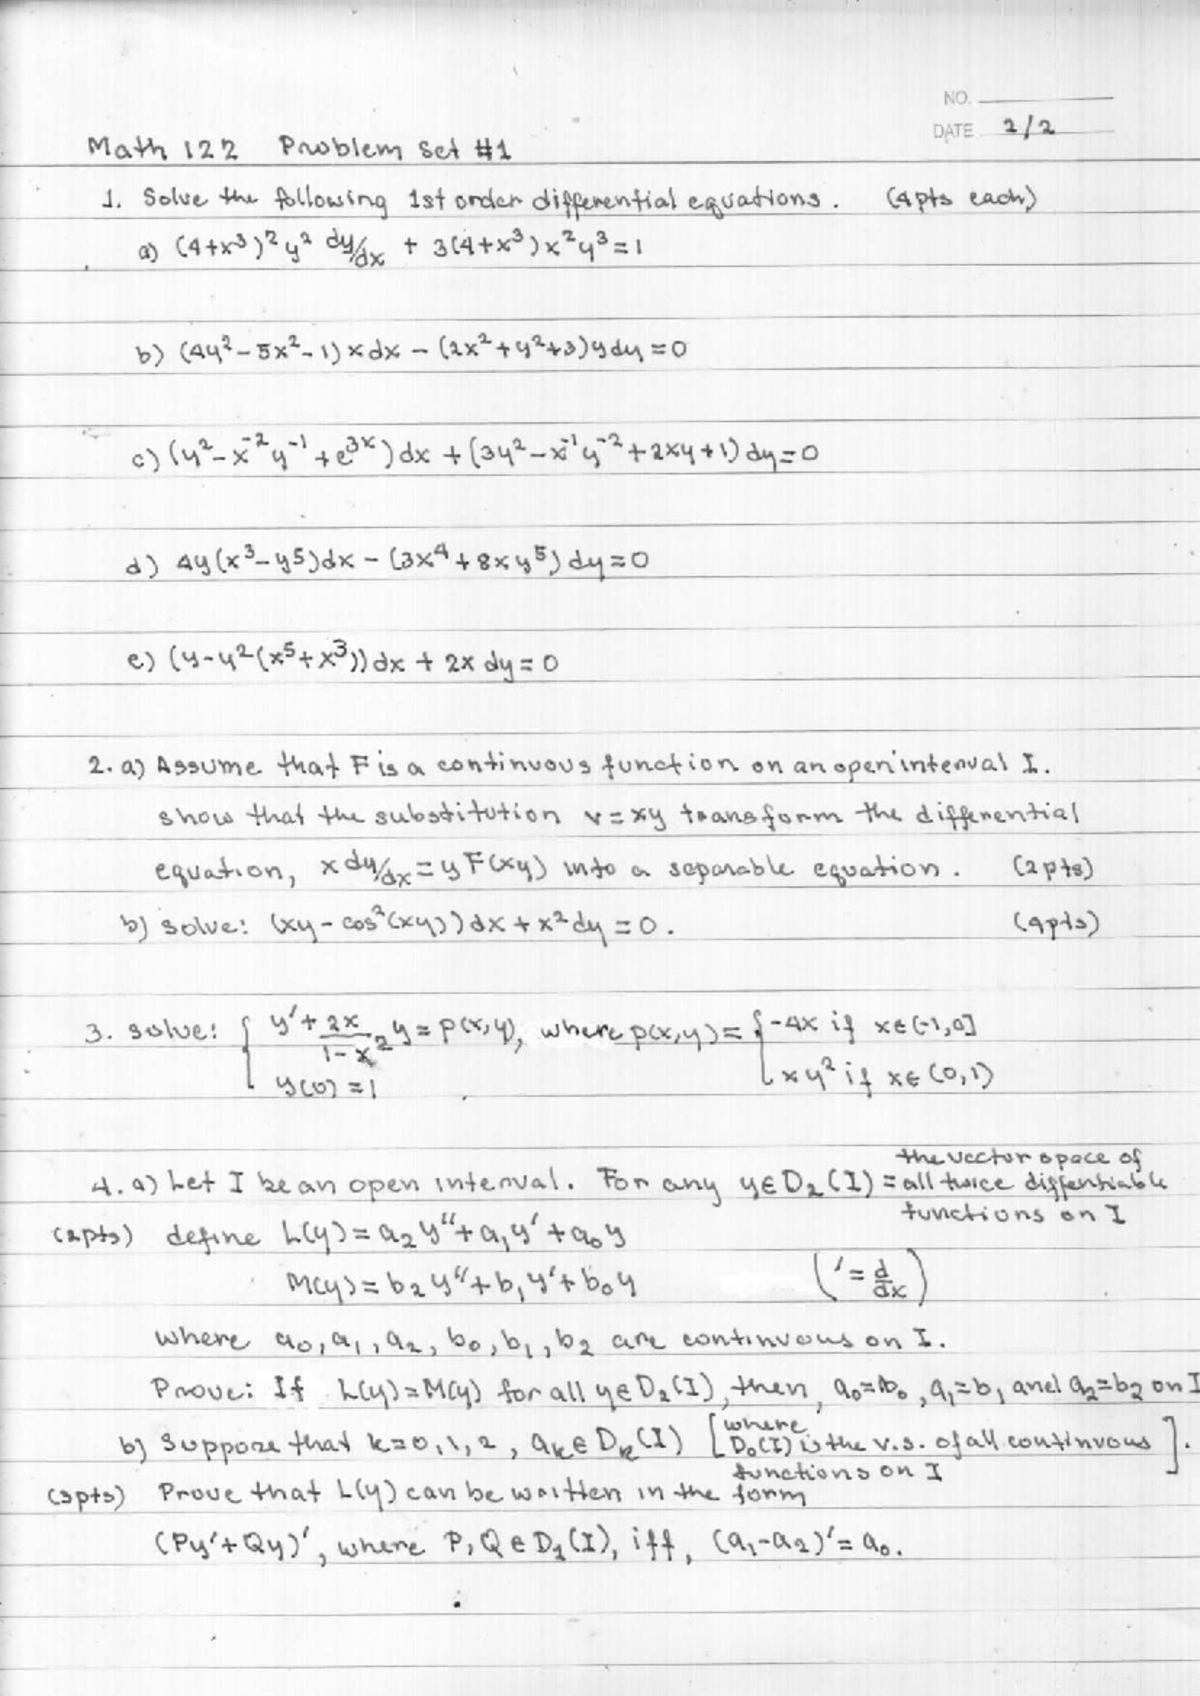 NO.
DATE 2/2
Math 122 Problem Set #1
1. Solve the following 1st order differential equations. (4pts each)
a) (4+x³)²y² dy/dx + 3(4+x³)x²y³=1
b) (4y²-5x²-1)xdx - (2x²+y²+3)ydy=0
c) (y²-x⁻²y⁻¹+e³ˣ)dx + (3y²-x⁻¹y⁻²+2xy+1)dy=0
d) 4y(x³-y⁵)dx - (3x⁴+8xy⁵)dy=0
e) (y-y²(x⁵+x³))dx + 2x dy=0
2. a) Assume that F is a continuous function on an open interval I.
show that the substitution v=xy transform the differential
equation, x dy/dx = y F(xy) into a separable equation. (2pts)
b) solve: (xy-cos²(xy))dx + x²dy=0. (4pts)
3. solve: { y'+ 2x/(1-x²) y = p(x,y), where p(x,y)= { -4x if x∈(-1,0]
y(0)=1 xy² if x∈(0,1)
4. a) Let I be an open interval. For any y∈D₂(I) = the vector space of all twice diffentiable functions on I
(2pts) define L(y)=a₂y"+a₁y'+a₀y
M(y)=b₂y"+b₁y'+b₀y ('= d/dx)
where a₀,a₁,a₂,b₀,b₁,b₂ are continuous on I.
Prove: If L(y)=M(y) for all y∈D₂(I), then, a₀=b₀, a₁=b₁ and a₂=b₂ on I
b) Suppose that k=0,1,2, aₖ∈Dₖ(I) [where D₀(I) is the v.s. of all continuous functions on I].
(3pts) Prove that L(y) can be written in the form
(Py'+Qy)', where P,Q∈D₁(I), iff, (a₁-a₂)'=a₀.